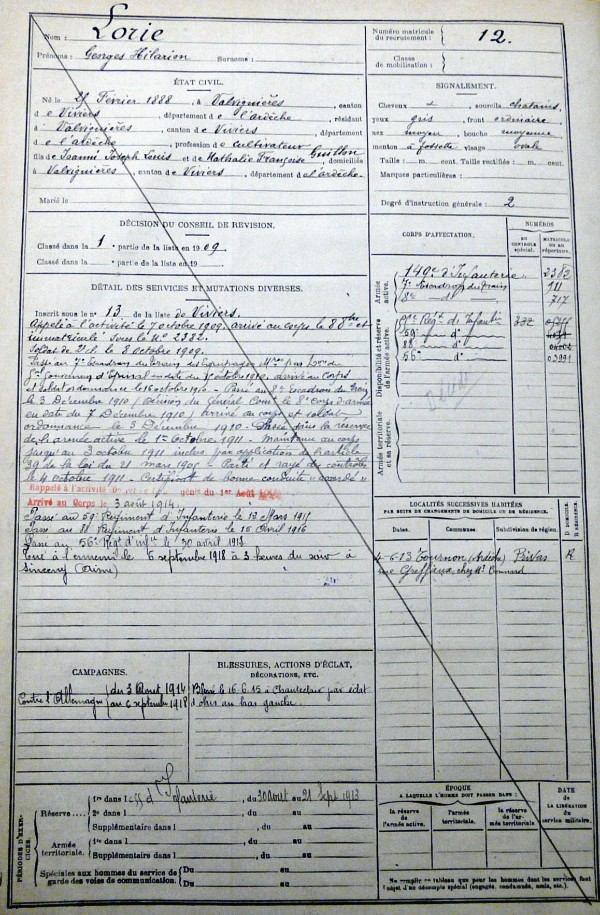 Nom : Lorie
Prénoms : Georges Hilarion Surnoms :
Numéro matricule du recrutement : 12.
Classe de mobilisation :
ÉTAT CIVIL.
Né le 25 Février 1888, à Valvignères, canton
de Viviers, département de l'Ardèche, résidant
à Valvignères, canton de Viviers, département
de l'ardèche, profession de Cultivateur
fils de Joseph Louis et de Nathalie Françoise, domiciliés
à Valvignères, canton de Viviers, département de l'ardèche
Marié le
SIGNALEMENT.
Cheveux sourcils chatains,
yeux gris, front ordinaire
nez moyen, bouche moyenne
menton à fossette visage ovale
Taille : m. cent. Taille rectifiée : m. cent.
Marques particulières :
Degré d'instruction générale : 2
DÉCISION DU CONSEIL DE REVISION.
Classé dans la 1e partie de la liste en 1909.
Classé dans la partie de la liste en 19
DÉTAIL DES SERVICES ET MUTATIONS DIVERSES.
Inscrit sous le n° 13 de la liste de Viviers.
Appelé à l'activité le 7 octobre 1909, arrivé au corps le 8 dudit et
immatriculé sous le N° 2382.
Soldat de 2e cl. le 8 octobre 1909.
Passé au 7e Escadron du train des Equipages Mres par
et soldat ordonnance le 16 octobre 1910 - Passé au 8e Escadron du train
le 3 Décembre 1910 (décision du Général Comt le 8e Corps d'armée
en date du 7 Décembre 1910) arrivé au corps et soldat
ordonnance le 3 Décembre 1910 - Passé dans la réserve
de l'armée active le 1er Octobre 1911 - Maintenu au corps
jusqu'au 3 octobre 1911 inclus par application de l'article
39 de la loi du 21 mars 1905 - Parti et rayé des contrôles
le 4 octobre 1911 - Certificat de bonne conduite "accordé"
Rappelé à l'activité du 1er Août
Arrivé au Corps le 3 août 1914.
Passé au 59e Régiment d'Infanterie le 13 Mars 1915
Passé au Régiment d'Infanterie le 16 Avril 1916
Passé au 56e Régt d'infie le 30 avril 1918
Tué à l'ennemi le 6 septembre 1918 à 3 heures du soir à
Sinceny (Aisne)
CORPS D'AFFECTATION.
NUMÉROS
AU CONTRÔLE SPÉCIAL.
MATRICULE OU AU RÉPERTOIRE.
Armée active.
149e d'Infanterie 2382
7e Escadron du train 911
8e do 717
Disponibilité et réserve de l'armée active.
Régt d'Infanterie
59e do
88e do
56e do
Armée territoriale et sa réserve.
LOCALITÉS SUCCESSIVES HABITÉES
PAR SUITE DE CHANGEMENTS DE DOMICILE OU DE RÉSIDENCE.
Dates. Communes. Subdivision de région. D. DOMICILE. R. RÉSIDENCE.
4-6-13 Tournon (Ardèche) Privas R
rue Greffieux, chez Mr Bonnard
CAMPAGNES.
Contre l'Allemagne du 3 Aout 1914
au 6 septembre 1918
BLESSURES, ACTIONS D'ÉCLAT,
DÉCORATIONS, ETC.
Blessé le 16.6.15 à Chanteclair par éclat
d'obus au bras gauche.
PÉRIODES D'EXERCICES.
Réserve.... 1re dans l d'Infanterie, du 30 aout au 21 Sept 1913
2e dans l , du au
Supplémentaire dans l , du au
Armée territoriale. 1re dans l , du au
Supplémentaire dans l , du au
Spéciales aux hommes du service de garde des voies de communication. Du au
Du au
ÉPOQUE
A LAQUELLE L'HOMME DOIT PASSER DANS :
la réserve de l'armée active. l'armée territoriale. la réserve de l'armée territoriale.
DATE de LA LIBÉRATION du service militaire.
Ne remplir ce tableau que pour les hommes dont les services font l'objet d'un décompte spécial (engagés, condamnés, omis, etc.).